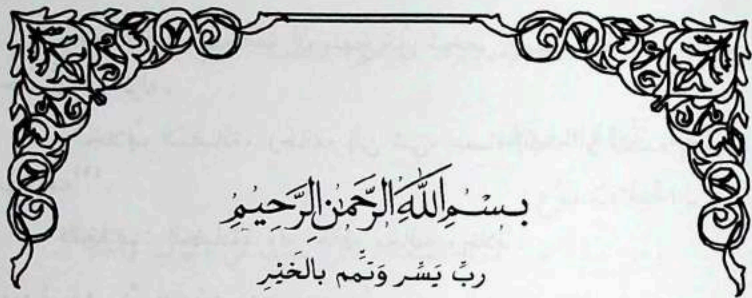 بِسْمِ اللَّهِ الرَّحْمَنِ الرَّحِيمِ
ربِّ يَسِّر وَتَمِّم بالخَيْرِ